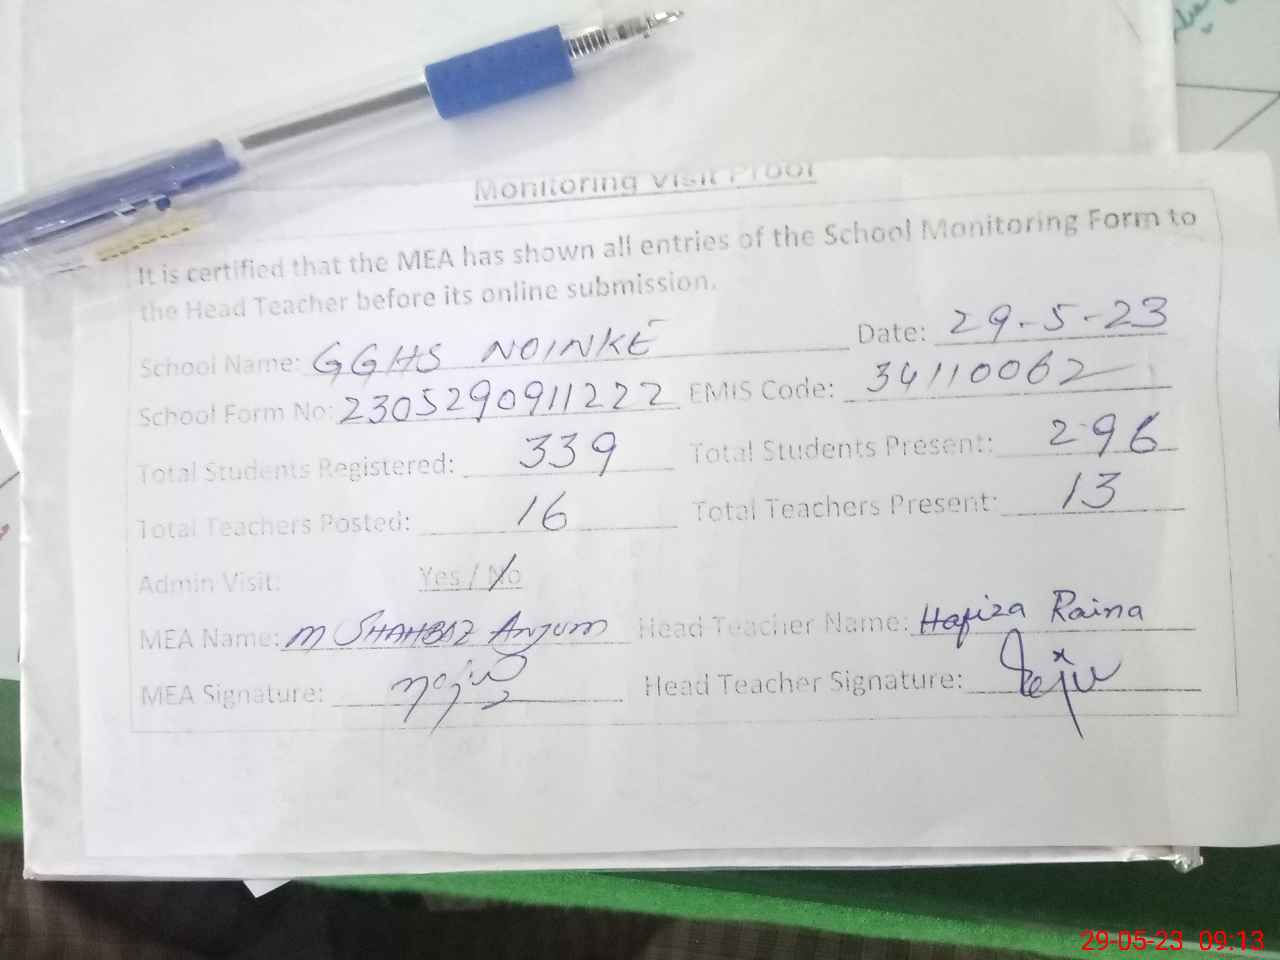 Monitoring Visit Proof
It is certified that the MEA has shown all entries of the School Monitoring Form to
the Head Teacher before its online submission.
School Name: GGHS NOINKE Date: 29-5-23
School Form No: 2305290911222 EMIS Code: 34110062
Total Students Registered: 339 Total Students Present: 296
Total Teachers Posted: 16 Total Teachers Present: 13
Admin Visit: Yes / No
MEA Name: M SHAHBAZ ANJUM Head Teacher Name: Hafiza Raina
MEA Signature: Head Teacher Signature:
29-05-23 09:13